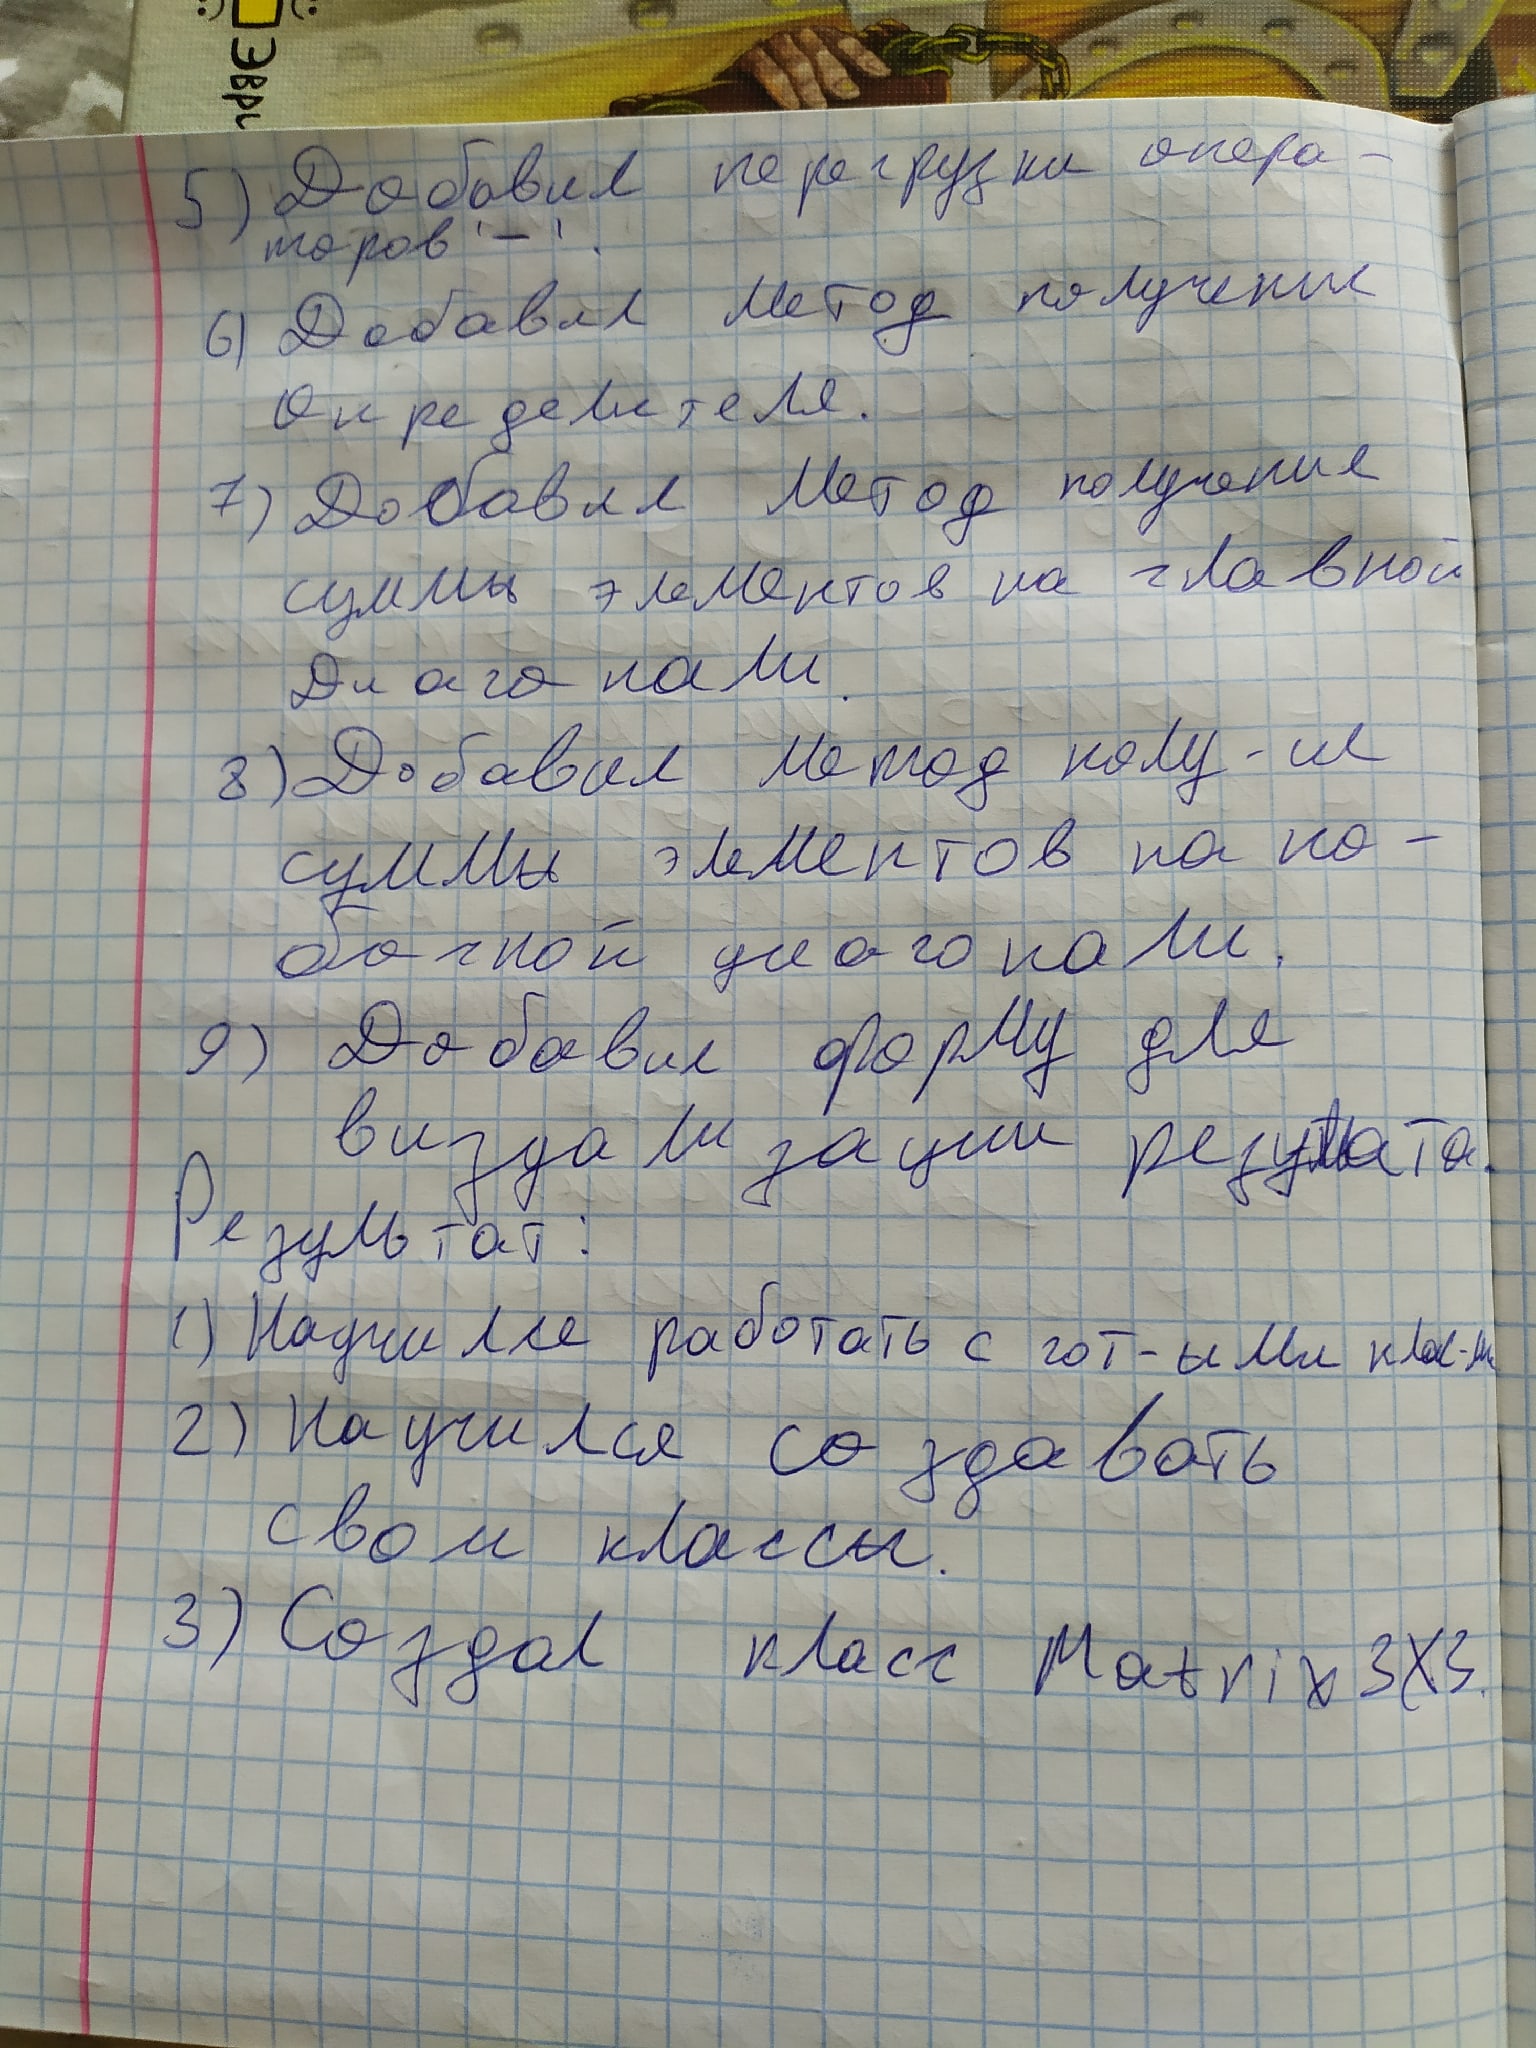 Эври
5) Добавил перегрузки опера-
торов '-'.
6) Добавил метод получения
определителя.
7) Добавил метод получения
суммы элементов на главной
диагонали.
8) Добавил метод полу-ия
суммы элементов на по-
бочной диагонали.
9) Добавил форму для
визуализации результата.
Результат:
1) Научился работать с гот-ыми клас-ми
2) Научился создавать
свои классы.
3) Создал класс Matrix3X3.